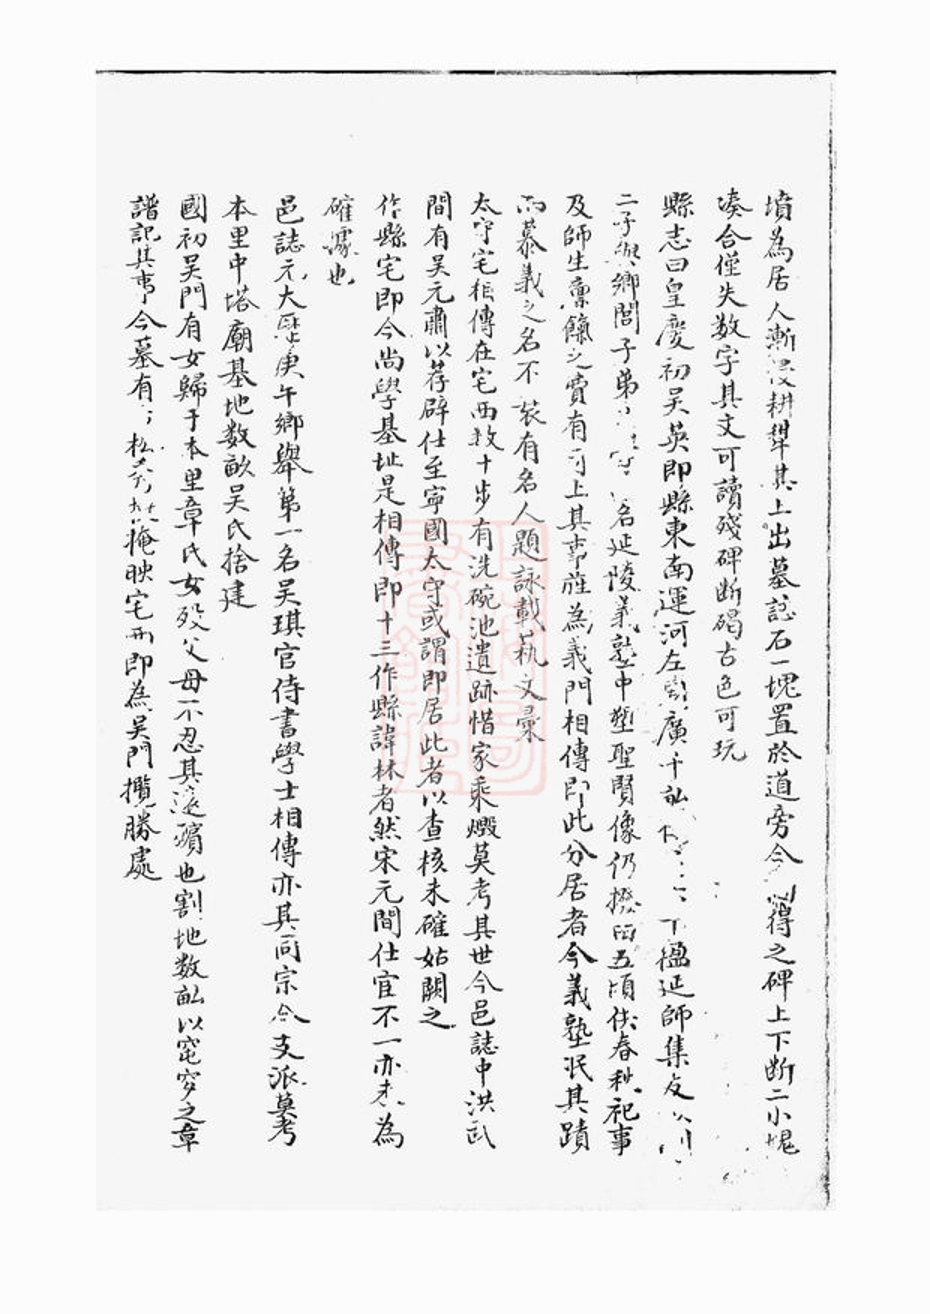 墳為居人漸侵耕犂其上出墓誌石一塊置於道旁今得之碑上下断二小塊
凑合僅失数字其文可讀殘碑断碣古色可玩
縣志曰皇慶初吴英即縣東南運河左廣千畝下楹延師集友
二子與鄉閭子弟名延陵義塾中塑聖賢像仍撥田五頃供春秋祀事
及師生廩餼之費有司上其事旌為義門相傳即此分居者今義塾泯其蹟
而慕義之名不衰有名人題詠載萟文彙
太守宅相傳在宅西数十步有洗碗池遺跡惜家乘燬莫考其世今邑誌中洪武
間有吴元肅以荐辟仕至寧國太守或謂即居此者以查核未確姑闕之
作縣宅即今尚學基址是相傳即十三作縣諱林者然宋元間仕宦不一亦未為
確據也
邑誌元大歷庚午鄉舉第一名吴琪官侍書學士相傳亦其同宗今支派莫考
本里中塔廟基地数畝吴氏捨建
國初吴門有女歸于本里章氏女殁父母不忍其遠殯也割地数畝以窀穸之章
譜記其事今墓有松掩映宅西即為吴門攬勝處